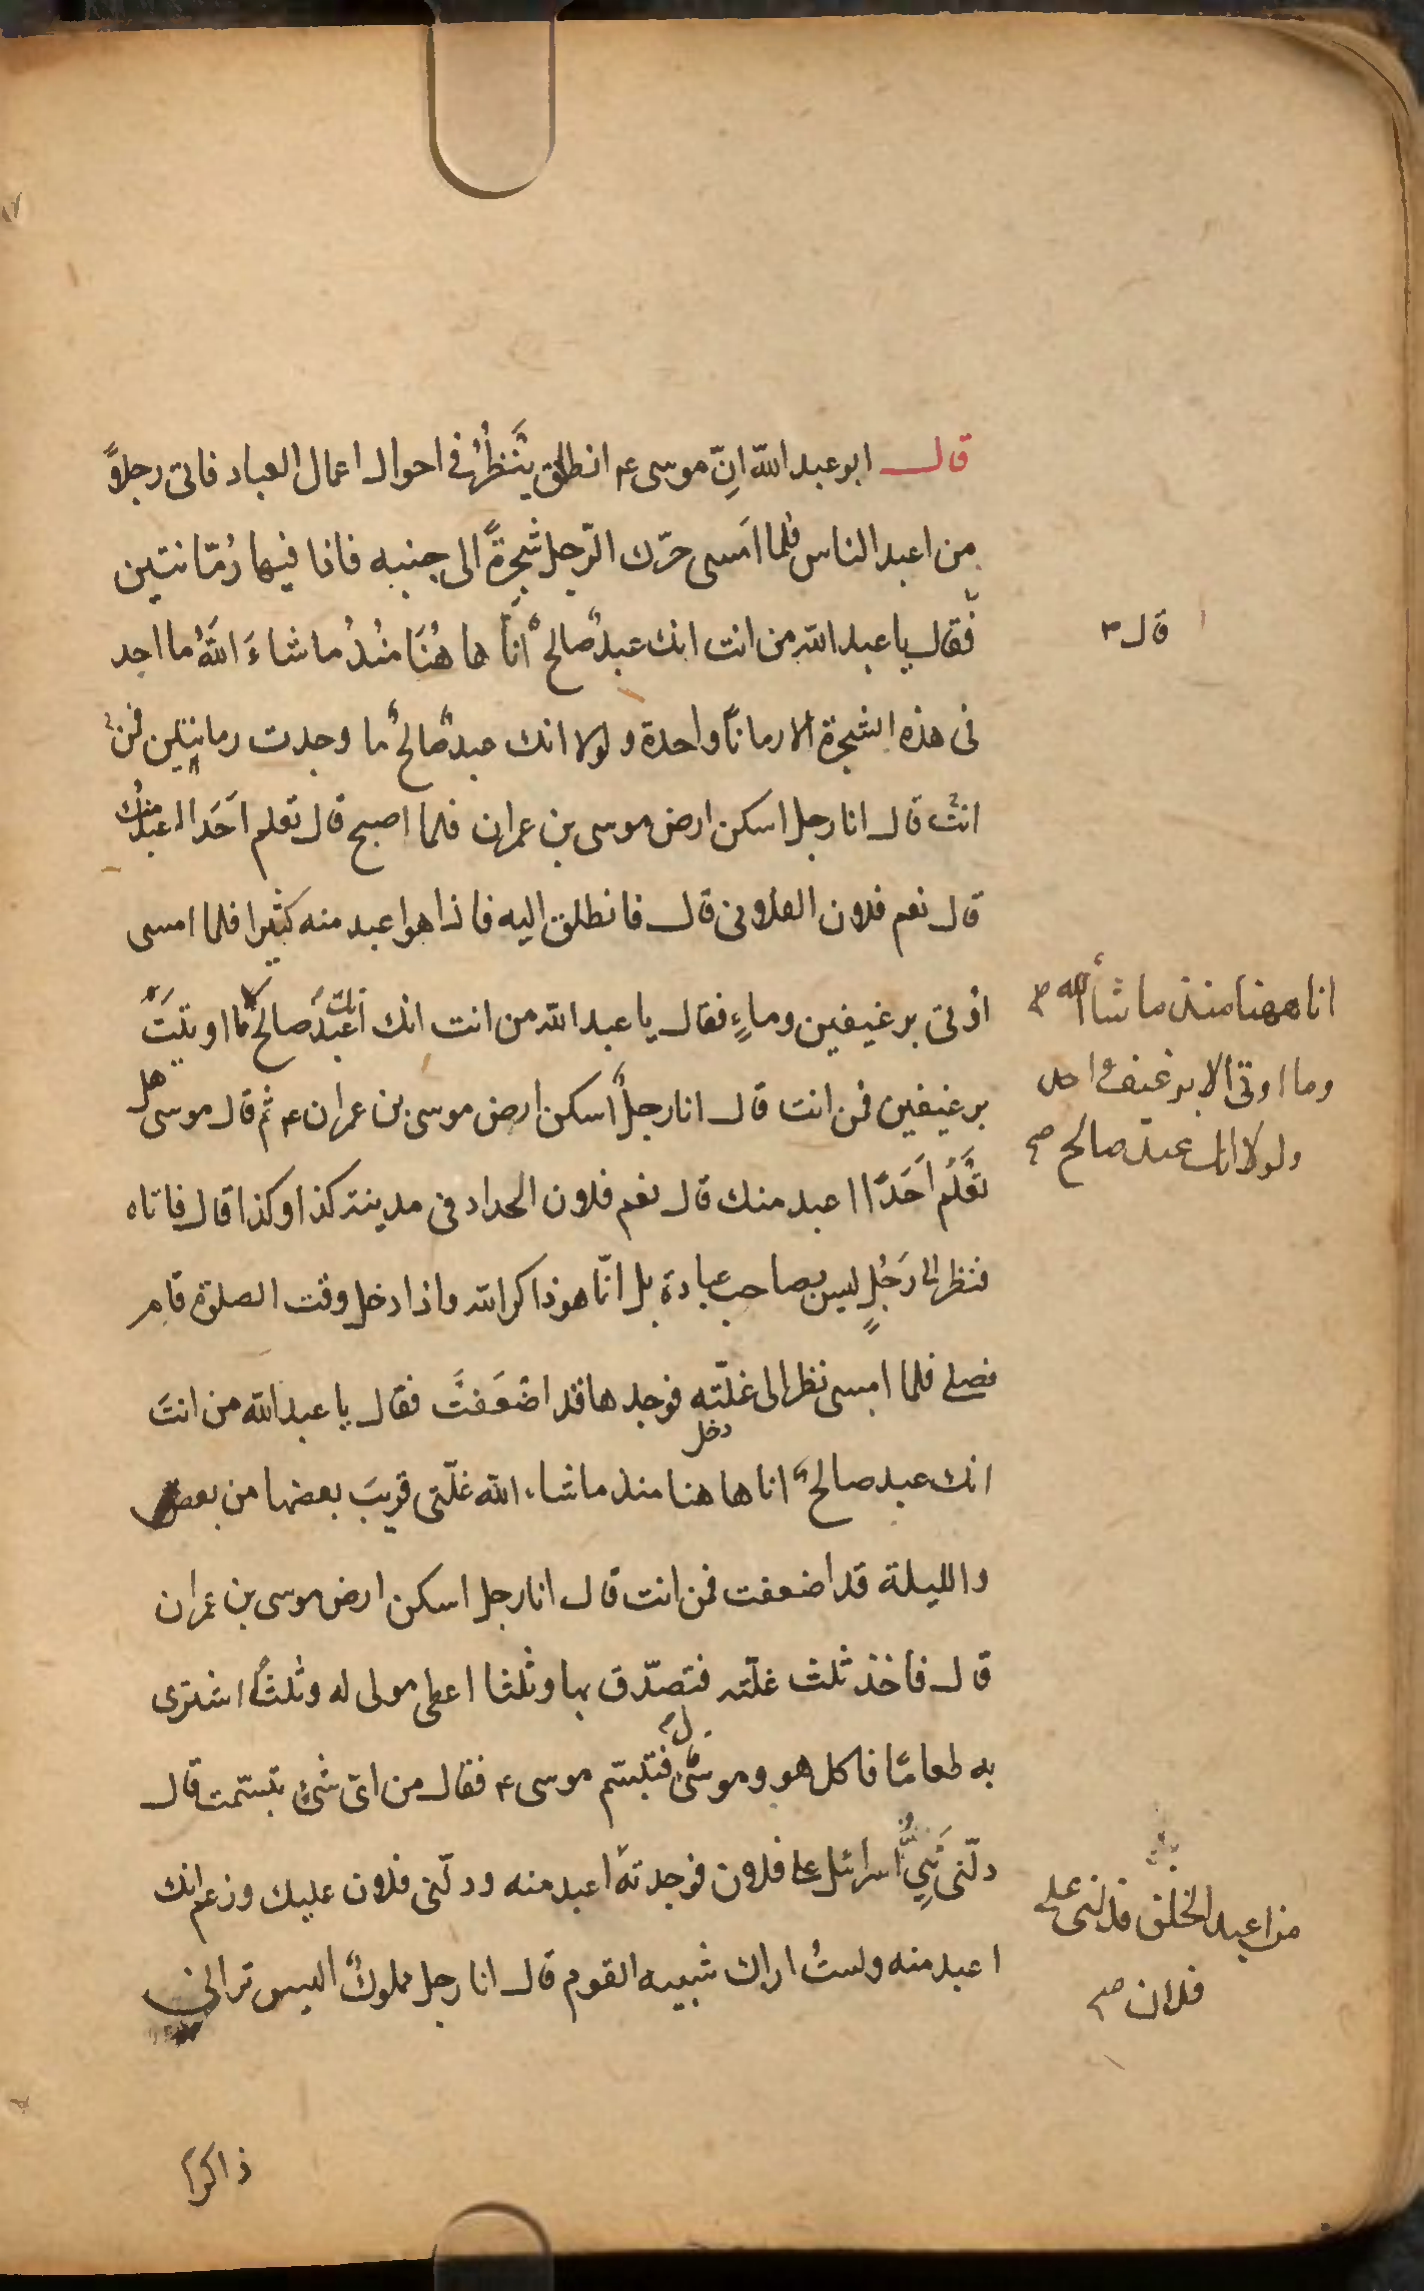 قال ابو عبد الله انّ موسى ع انطلق يَنظُرُ في احوال اعمال العباد فاتى رجلاً
من اعبد الناس فلما امَسى حرّك الرّجل شجرةً الى جنبه فاذا فيها رُمّانتين
فقال يا عبد الله من انت انك عبدٌ صالحٌ انَا ها هُنَا مُنذُ ما شاءَ اللهُ ما اجد
قال
فى هذه الشجرة الا رمانةً واحدة ولولا انك عبدٌ صالحٌ ما وجدت رمانتين فمن
انتَ قال انا رجل اسكن ارض موسى بن عمران فلما اصبح قال تعلم احَدا اعبد منك
قال نعم فلان الفلانى قال فانطلق اليه فاذا هو اعبد منه كثيرا فلما امسى
اُوتى برغيفين وماءٍ فقال يا عبد الله من انت انك عبدٌ صالحٌ ما اوتيتَ
انا ههنا منذ ما شاء الله
وما اوتى الا برغيف واحد
ولولا انك عبد صالح صح
برغيفين فمن انت قال انا رجلٌ اسكن ارض موسى بن عمران ع ثم قال موسى هل
تَعْلَمُ اَحَدًا اعبد منك قال نعم فلان الحداد فى مدينة كذا وكذا قال فاتاه
فنظر الى رَجُلٍ ليس بصاحب عبادة بل انّما هو ذاكر الله واذا دخل وقت الصلوة قام
فصلى فلما امسى نظر الى غلّته فوجدها قد اضعَفتَ فقال يا عبد الله من انتَ
دخل
انك عبد صالحٌ انا ها هنا منذ ما شاء الله غلّتى قريبَ بعضها من بعض
والليلة قد اضعفت فمن انت قال انا رجل اسكن ارض موسى بن عمران
قال فاخذ ثلث غلّته فتصدّق بها وثلثا اعطى مولى له وثلثًا اشترى
به طعامًا فاكل هو وموسىٰ فتبسّم موسى ع فقال من اىّ شىءٍ تبسّمت قال
دلّنى نَبِىُّ اسرائل على فلان فوجدتهَ اعبد منه ودلّنى فلان عليك وزعم انك
من اعبد الخلق فدلنى على
فلان صح
اعبد منه ولستُ اراك شبيه القوم قال انا رجل مملوكٌ اليس ترانى
ذاكرًا